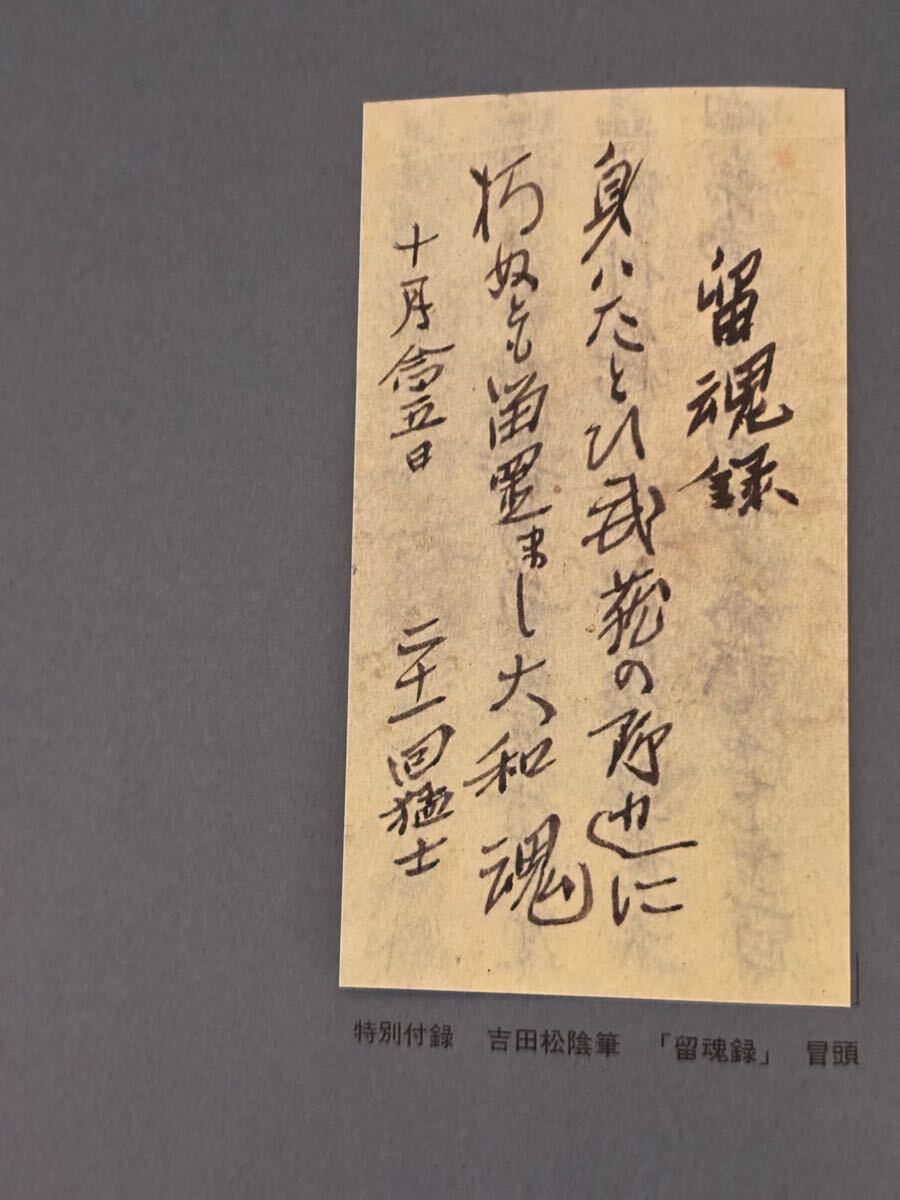 留魂録
身ハたとひ武蔵の野辺に
朽ぬとも留置まし大和魂
十月念五日　二十一回猛士
特別付録　吉田松陰筆　「留魂録」　冒頭